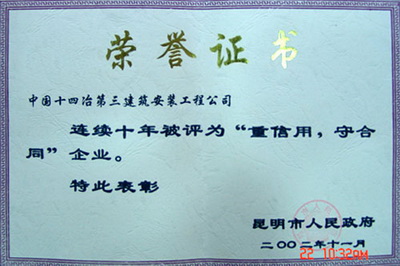 荣誉证书
中国十四冶第三建筑安装工程公司
连续十年被评为“重信用，守合
同”企业。
特此表彰
昆明市人民政府
二〇〇二年十一月
22 10:32AM